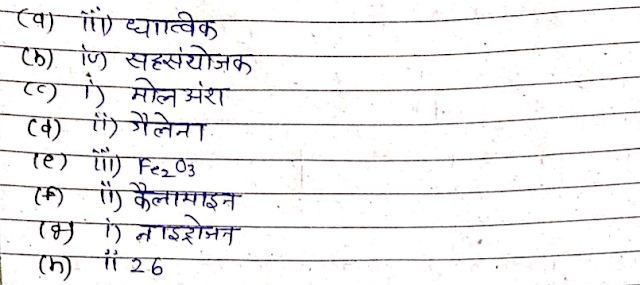 (a) iii) धात्विक
(b) iv) सहसंयोजक
(c) i) मोल अंश
(d) ii) गैलेना
(e) iii) Fe₂O₃
(f) ii) कैलामाइन
(g) i) नाइट्रोजन
(h) ii 26